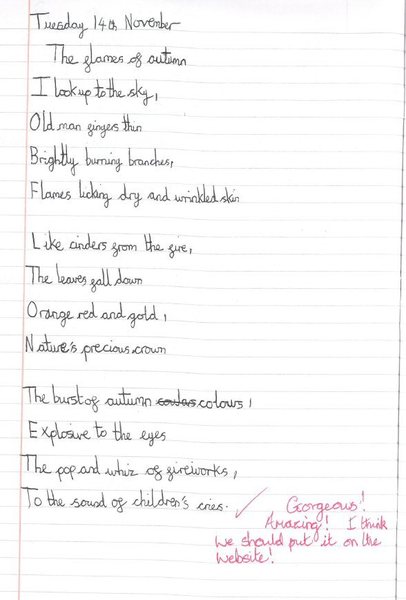 Tuesday 14th November
The flames of autumn
I look up to the sky,
Old man fingers thin
Brightly burning branches,
Flames licking dry and wrinkled skin
Like cinders from the fire,
The leaves fall down
Orange red and gold,
Nature's precious crown
The burst of autumn coulars colours,
Explosive to the eyes
The pop and whiz of fireworks,
To the sound of children's cries.
Gorgeous!
Amazing! I think
we should put it on the
website!